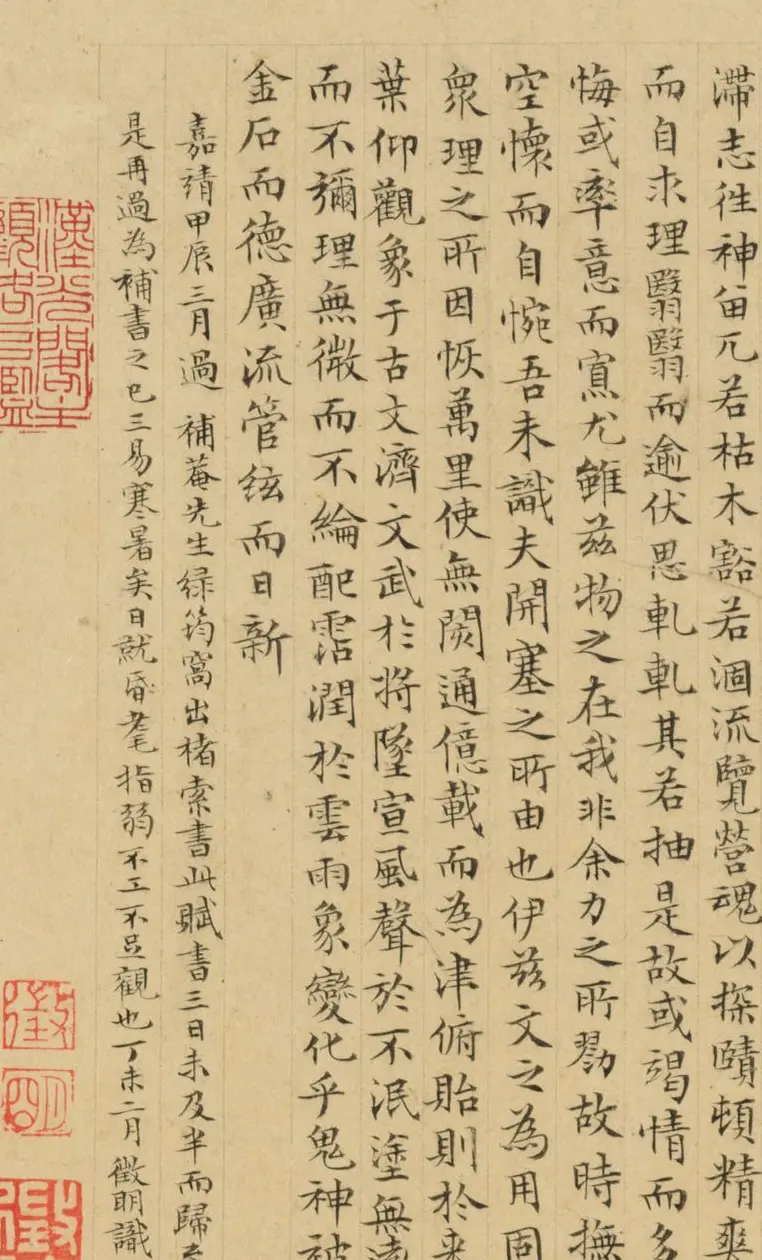 滯志徃神留兀若枯木豁若涸流覽營魂以探賾頓精爽
而自求理翳翳而逾伏思軋軋其若抽是故或竭情而多
悔或率意而寡尤雖茲物之在我非余力之所勠故時撫
空懷而自惋吾未識夫開塞之所由也伊茲文之為用固
衆理之所因恢萬里使無閡通億載而為津俯貽則於来
葉仰觀象于古文濟文武於將墜宣風聲於不泯塗無遠
而不彌理無微而不綸配霑潤於雲雨象變化乎鬼神被
金石而德廣流管絃而日新
嘉靖甲辰三月過補菴先生緑筠窩出楮索書此賦書三日未及半而歸至
是再過為補書之已三易寒暑矣日就昏耄指弱不工不足觀也丁未二月徵明識
漢光閣主
顧君
徵
明